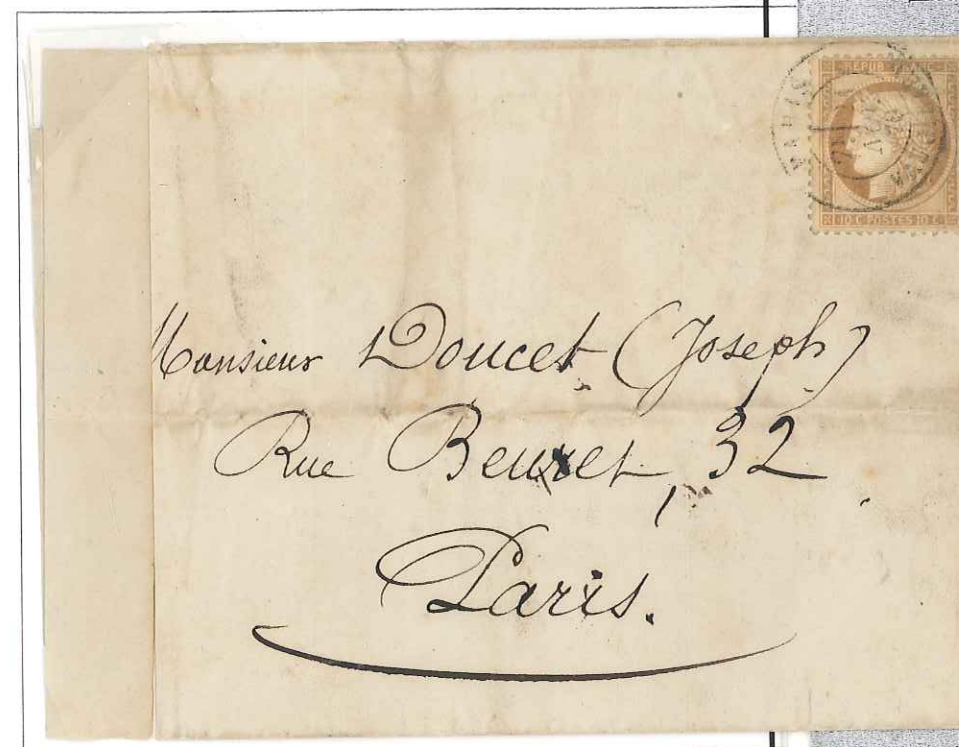 REPUB FRANC
PARIS
10 C POSTES 10 C
Monsieur Doucet (Joseph)
Rue Beuret, 32
Paris.